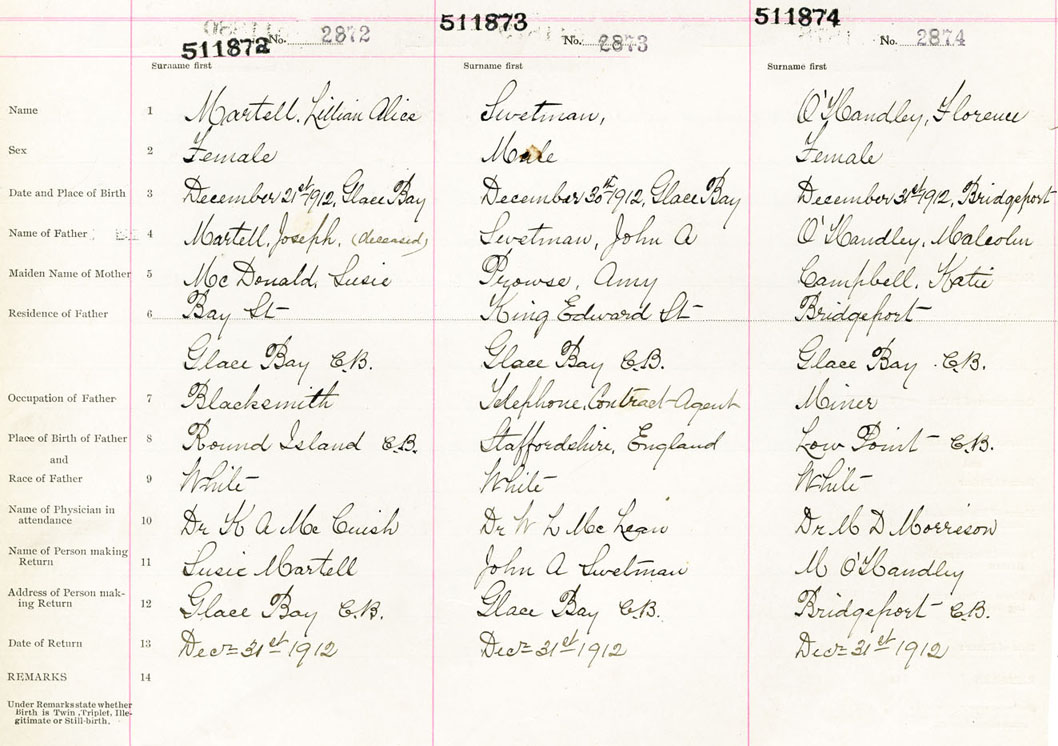 511872 No. 2872
511873 No. 2873
511874 No. 2874
Surname first Surname first Surname first
Name 1 Martell, Lillian Alice Swetman, O'Handley, Florence
Sex 2 Female Male Female
Date and Place of Birth 3 December 21st 1912, Glace Bay December 30th 1912, Glace Bay December 31st 1912, Bridgeport
Name of Father 4 Martell, Joseph, (deceased) Swetman, John A O'Handley, Malcolm
Maiden Name of Mother 5 Mc Donald, Susie Prowse, Amy Campbell, Katie
Residence of Father 6 Bay St King Edward St Bridgeport
Glace Bay C.B. Glace Bay C.B. Glace Bay C.B.
Occupation of Father 7 Blacksmith Telephone, Contract Agent Miner
Place of Birth of Father 8 Round Island C.B. Staffordshire, England Low Point C.B.
and
Race of Father 9 White White White
Name of Physician in
attendance 10 Dr K A Mc Cuish Dr W L Mc Lean Dr M D Morrison
Name of Person making
Return 11 Susie Martell John A Swetman M O'Handley
Address of Person mak-
ing Return 12 Glace Bay C.B. Glace Bay C.B. Bridgeport C.B.
Date of Return 13 Decr 31st 1912 Decr 31st 1912 Decr 31st 1912
REMARKS 14
Under Remarks state whether
Birth is Twin, Triplet, Ille-
gitimate or Still-birth.